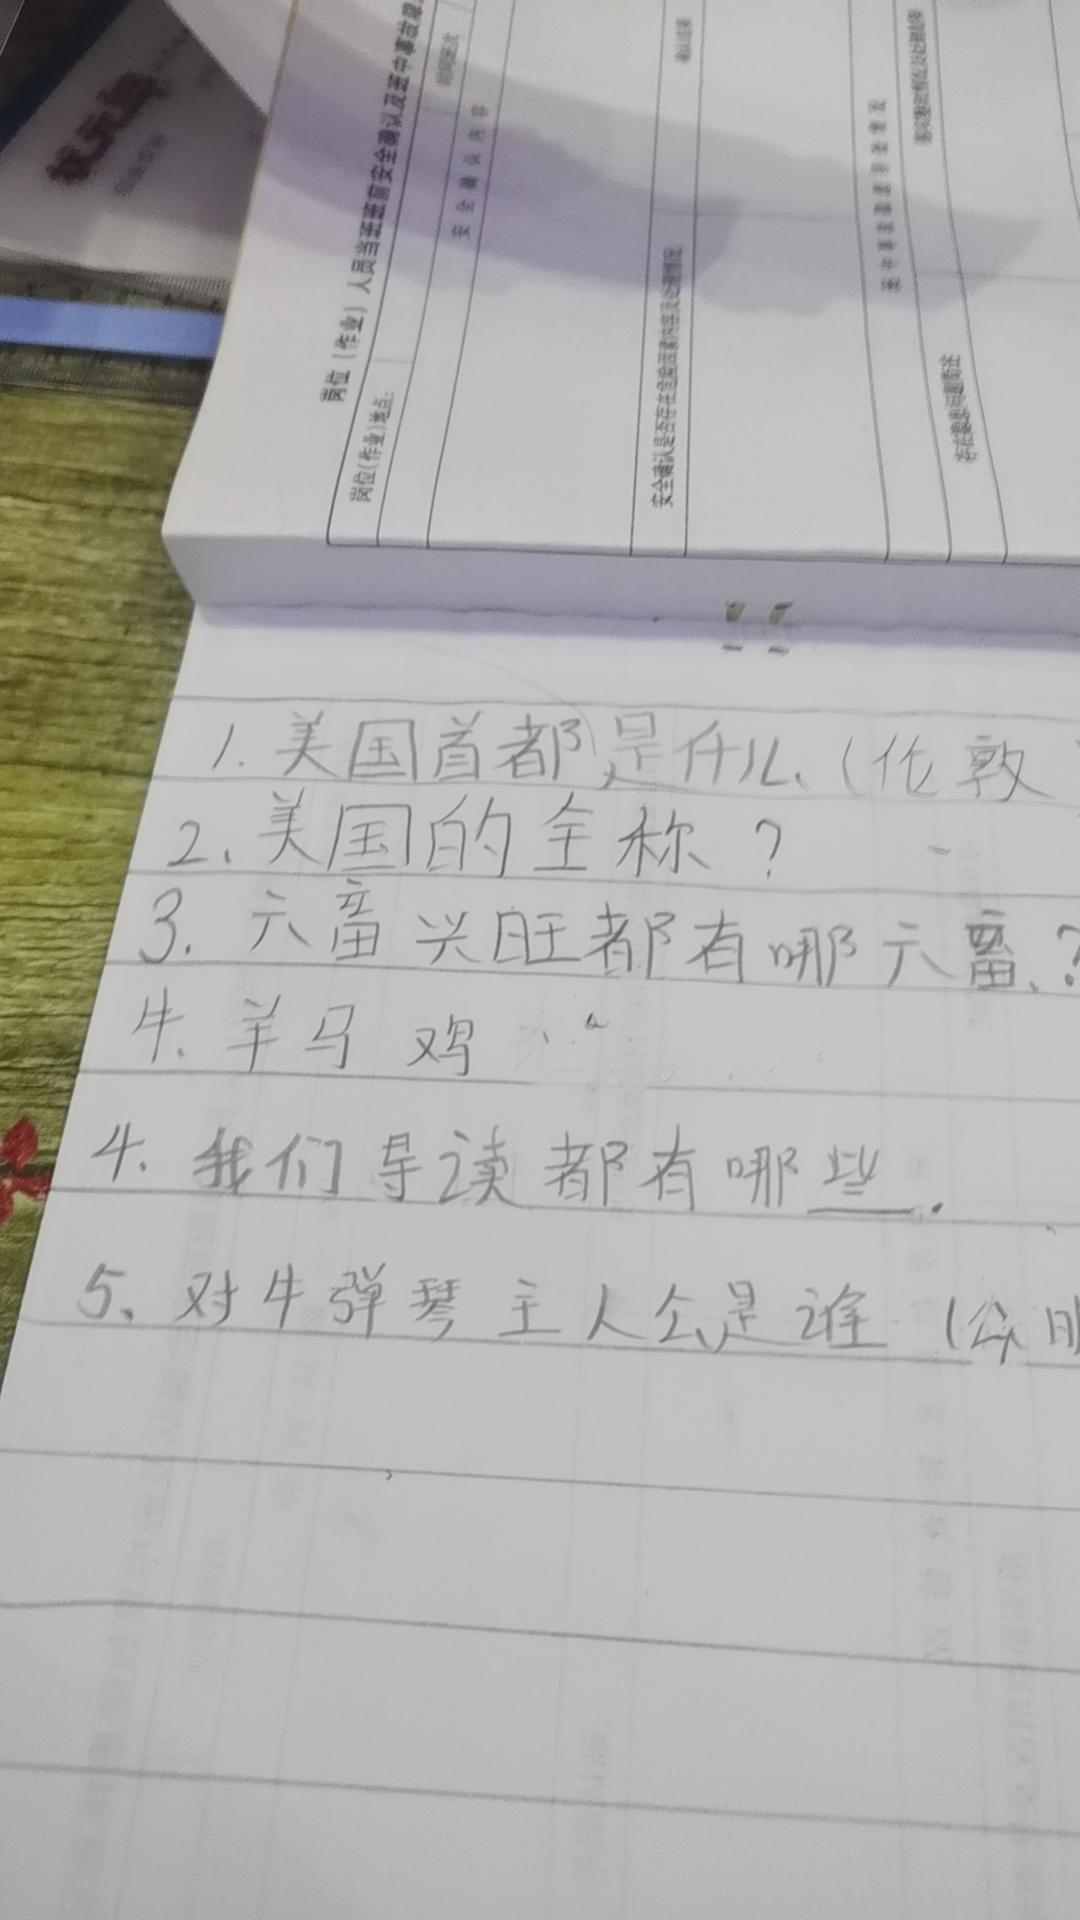 岗位（作业）人员当班班前安全确认及班中事故隐
岗位（作业）地点：
安全确认内容
安全确认是否存在
班中事故隐患排查情况
1. 美国首都是什么（伦敦
2、美国的全称？
3. 六畜兴旺都有哪六畜、？
牛、羊马 鸡
4. 我们导读都有哪些.
5、对牛弹琴主人公是谁（公明